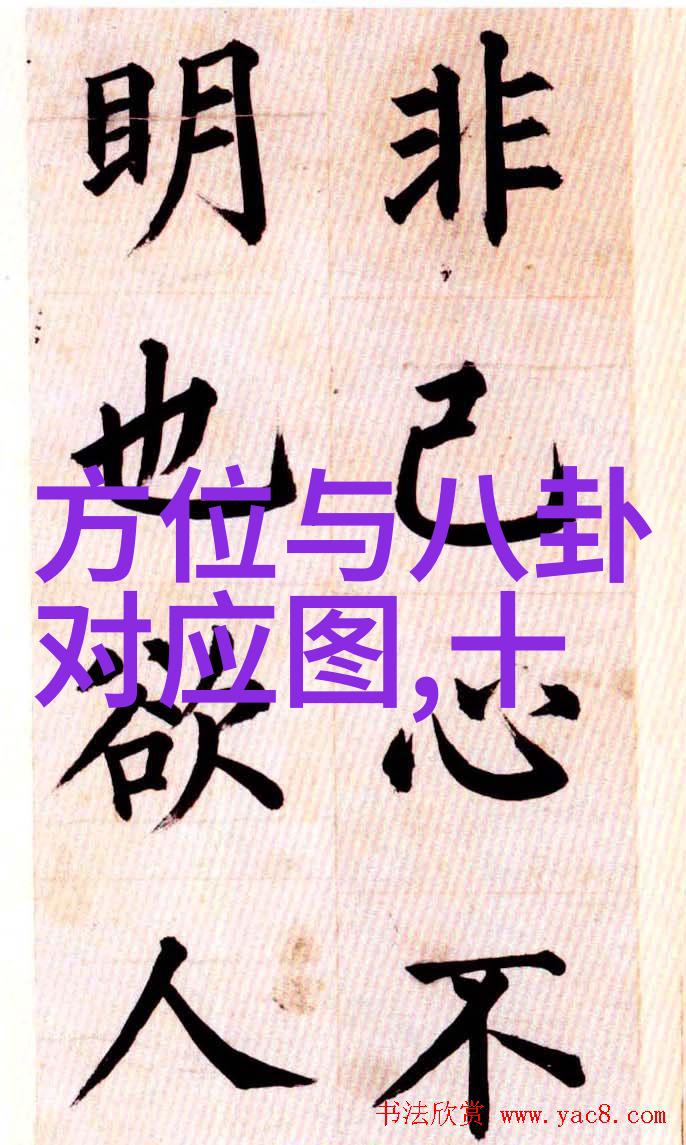 非己心不
明也欲人
方位与八卦
对应图,十
书法欣赏 www.yac8.com